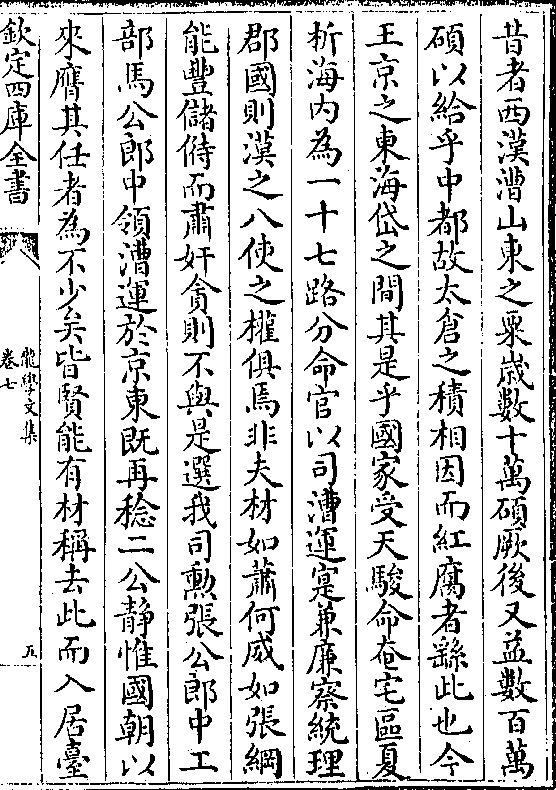 昔者西漢漕山東之粟歲數十萬碩厥後又益數百萬
碩以給乎中都故太倉之積相因而紅腐者繇此也今
王京之東海岱之間其是乎國家受天駿命奄宅區夏
析海内為一十七路分命官以司漕運寔兼廉察統理
郡國則漢之八使之權俱焉非夫材如蕭何威如張綱
能豐儲偫而肅奸貪則不與是選我司勲張公郎中工
部馬公郎中領漕運於京東既再稔二公静惟國朝以
來膺其任者為不少矣皆賢能有材稱去此而入居臺
欽定四庫全書
龍學文集
卷七
五